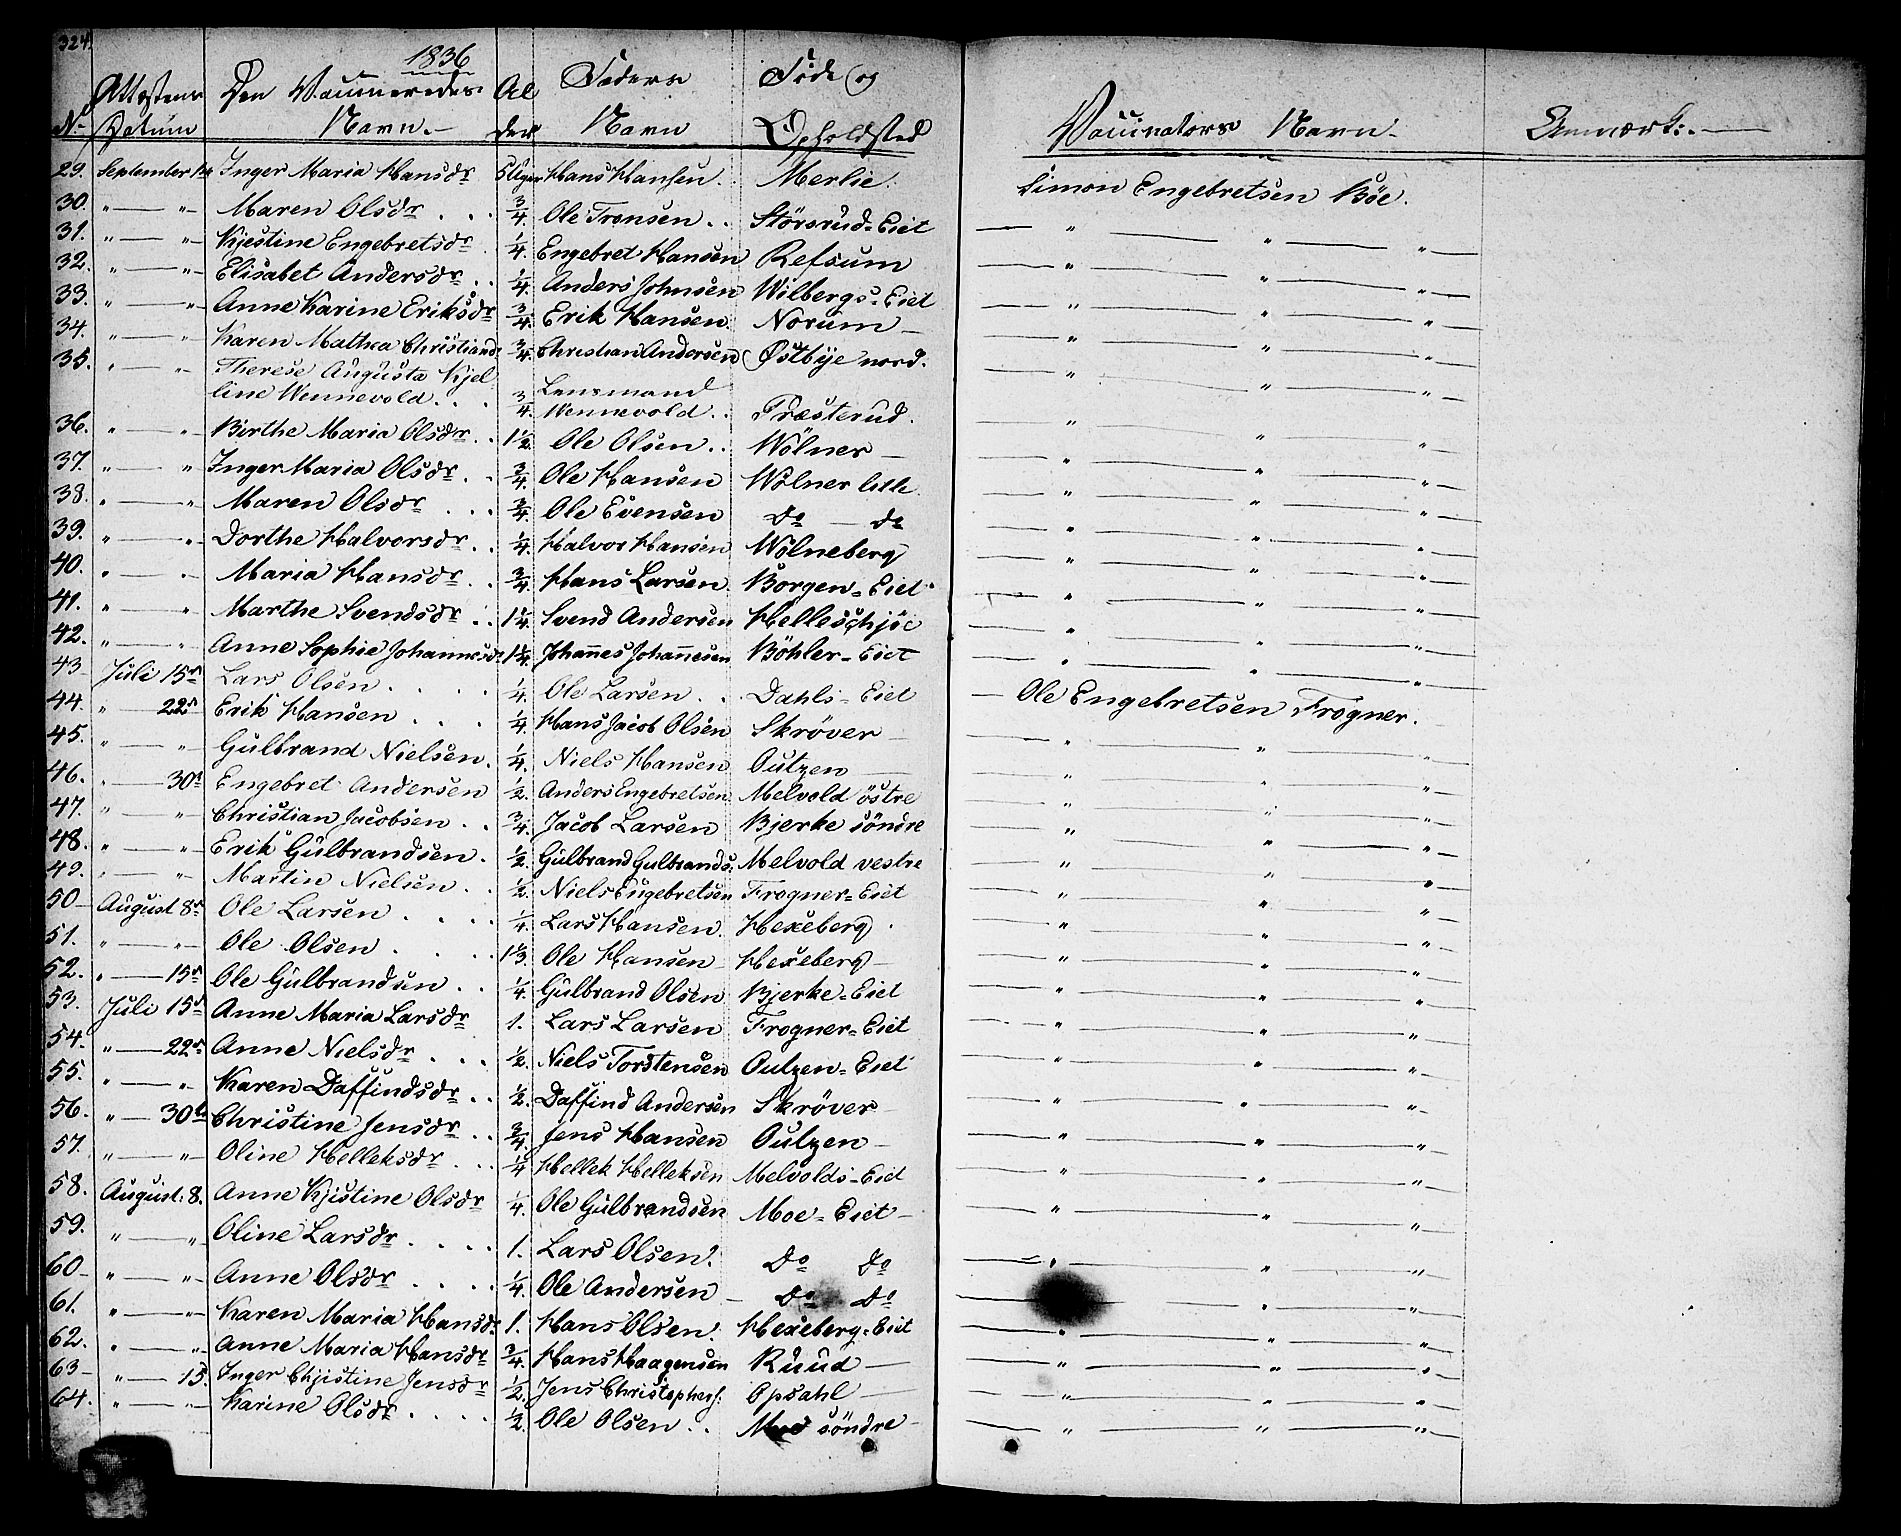 324.
1836
Attestens Den Vaccineredes Al Faders Føde og
No Datum Navn.- der Navn Opholdsted Vaccinators Navn. Anmærk:.
29. September 1ste Inger Maria Hansdr 5 Uger Hans Hansen. Merlie. Simon Engebretsen Böe.
30. " — " Maren Olsdr . . . 3/4. Ole Tronsen . . Störsrud=Eiet — " — " — "
31. " — " Kjestine Engebretsdr 1/4. Engebret Hansen Refsum — " — " — "
32. " — " Elisabet Andersdr . . 1/4. Anders Johnsen Wilbergs=Eiet — " — " — "
33. " — " Anne Karine Eriksdr 3/4. Erik Hansen. Norum — — " — " — "
34. " — " Karen Mathea Christiansd. 3/4. Christian Andersen Østbye nord. — " — " — "
35. " — " Therese Augusta Kjel
line Wennevold . . . 3/4 Lensmand Wennevold . . Præsterud. — " — " — "
36. " — " Birthe Maria Olsdr . . 1 1/2. Ole Olsen . . Wölner — — " — " — "
37. " — " Inger Maria Olsdr . . 3/4. Ole Hansen Wölner lille. — " — " — "
38. " — " Maren Olsdr . . . 3/4. Ole Evensen Do — do — " — " — "
39. " — " Dorthe Halvorsdr . . 1/4. Halvor Hansen Wölneberg — " — " — "
40. " — " Maria Hansdr . . 3/4. Hans Larsen Borgen=Eiet — " — " — "
41. " — " Marthe Svendsdr . . 1 1/4. Svend Andersen Helleschjöe — " — " — "
42. " — " Anne Sophie Johannesdr 1 1/4. Johannes Johannesen Böhler=Eiet — " — " — "
43 Juli 15de Lars Olsen . . . . 1/4. Ole Larsen . . Dahls=Eiet — Ole Engebretsen Frogner.
44. " — 22de Erik Hansen . . . 1/4. Hans Jacob Olsen Skröver — — " — " — "
45. " — " Gulbrand Nielsen. 1/4. Niels Hansen Outzen — — " — " — "
46. " — 30te Engebret Andersen 1/2. Anders Engebretsen Melvold östre — " — " — "
47. " — " Christian Jacobsen . . 3/4. Jacob Larsen Bjerke söndre — " — " — "
48. " — " Erik Gulbrandsen. 1/2. Gulbrand Gulbrands. Melvold vestre — " — " — "
49. " — " Martin Nielsen . . 1/2. Niels Engebretsen Frogner=Eiet — " — " — "
50 August 8de Ole Larsen . . . . 1/4. Lars Hansen. Hexeberg. — " — " — "
51. " — " Ole Olsen . . . 1 1/3. Ole Hansen Hexeberg — — " — " — "
52. " — 15de Ole Gulbrandsen . . 1/4. Gulbrand Olsen Bjerke=Eiet — " — " — "
53. Juli 15de Anne Maria Larsdr 1. Lars Larsen Frogner=Eiet — " — " — "
54. " — 22de Anne Nielsdr . . . 1/2. Niels Torstensen Outzen=Eiet — " — " — "
55. " — " Karen Daffindsdr . . 1/2. Daffind Andersen Skröver — " — " — "
56. " — 30te Christine Jensdr . . 3/4. Jens Hansen Outzen — — " — " — "
57. " — " Oline Helleksdr . . . 1/4 Hellek Helleksen Melvolds=Eiet — " — " — "
58. August. 8. Anne Kjistine Olsdr 1/4. Ole Gulbrandsen Moe=Eiet — — " — " — "
59. " — " Oline Larsdr . . . . 1. Lars Olsen. Do Do — " — " — "
60 " — " Anne Olsdr . . . . 1/4. Ole Andersen Do Do — " — "
61. " — " Karen Maria Hansdr. 1. Hans Olsen. Hexeberg=Eiet — " — " — "
62. " — " Anne Maria Hansdr 3/4. Hans Haagensen Ruud — — " — " — "
63 " — 15. Inger Chjistine Jensdr 1/2. Jens Christophers. Opsahl — — " — " — "
64. " — " Karine Olsdr . . . . 1/2. Ole Olsen . . Moe söndre — " — " — "